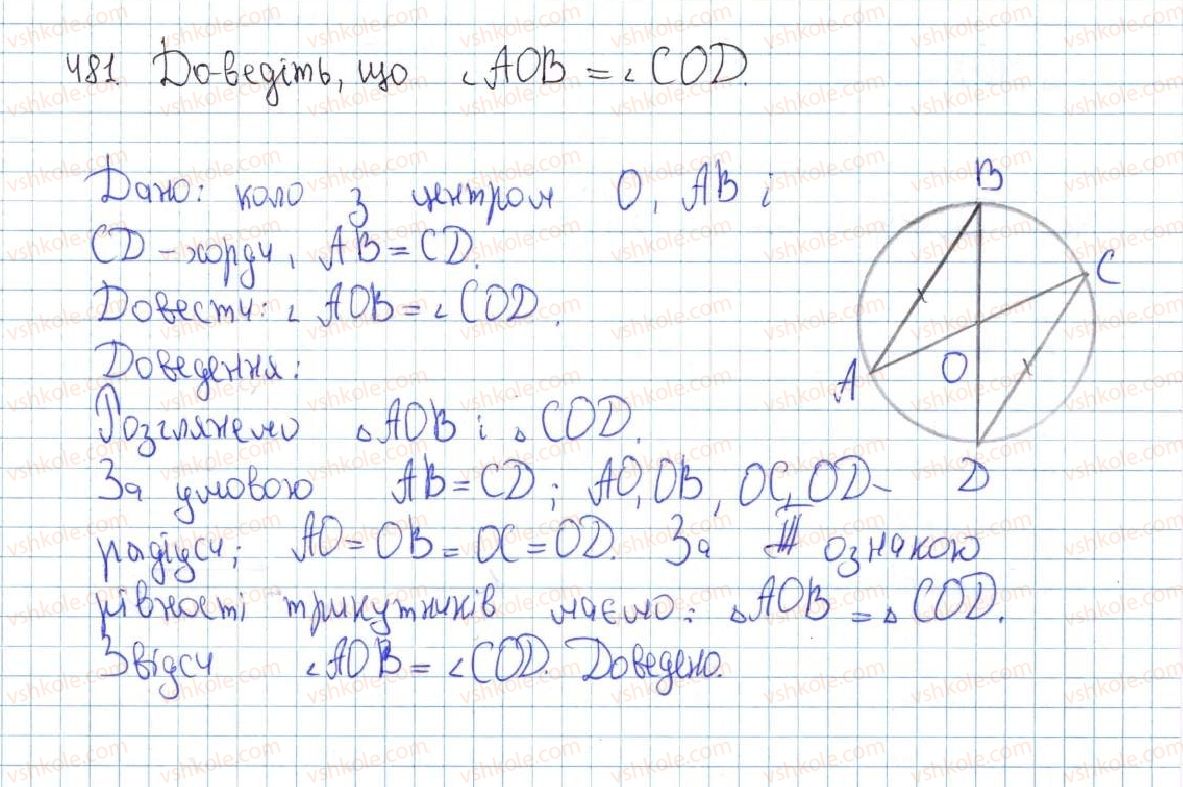 481. Доведіть, що ∠AOB = ∠COD.
Дано: коло з центром O, AB і
CD – хорди, AB = CD.
Довести: ∠AOB = ∠COD.
Доведення:
Розглянемо △AOB і △COD.
За умовою AB = CD; AO, OB, OC, OD –
радіуси; AO = OB = OC = OD. За III ознакою
рівності трикутників маємо: △AOB = △COD.
Звідси ∠AOB = ∠COD. Доведено.
B
C
A
O
D
vshkole.com